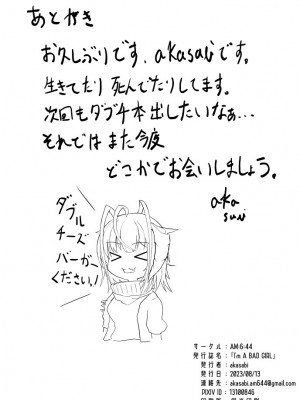 あとがき
お久しぶりです、akasabiです。
生きてたり死んでたりしてます。
次回もダブチ本出したいなぁ…
それではまた今度
どこかでお会いしましょう。
akasabi
ダブル
チーズ
バーガー
ください!
サークル : AM6:44
発行誌名 : 「I'm A BAD GIRL」
発行者 : akasabi
発行日 : 2023/08/13
連絡先 : akasabi.am644@gmail.com
PIXIV ID : 13100846